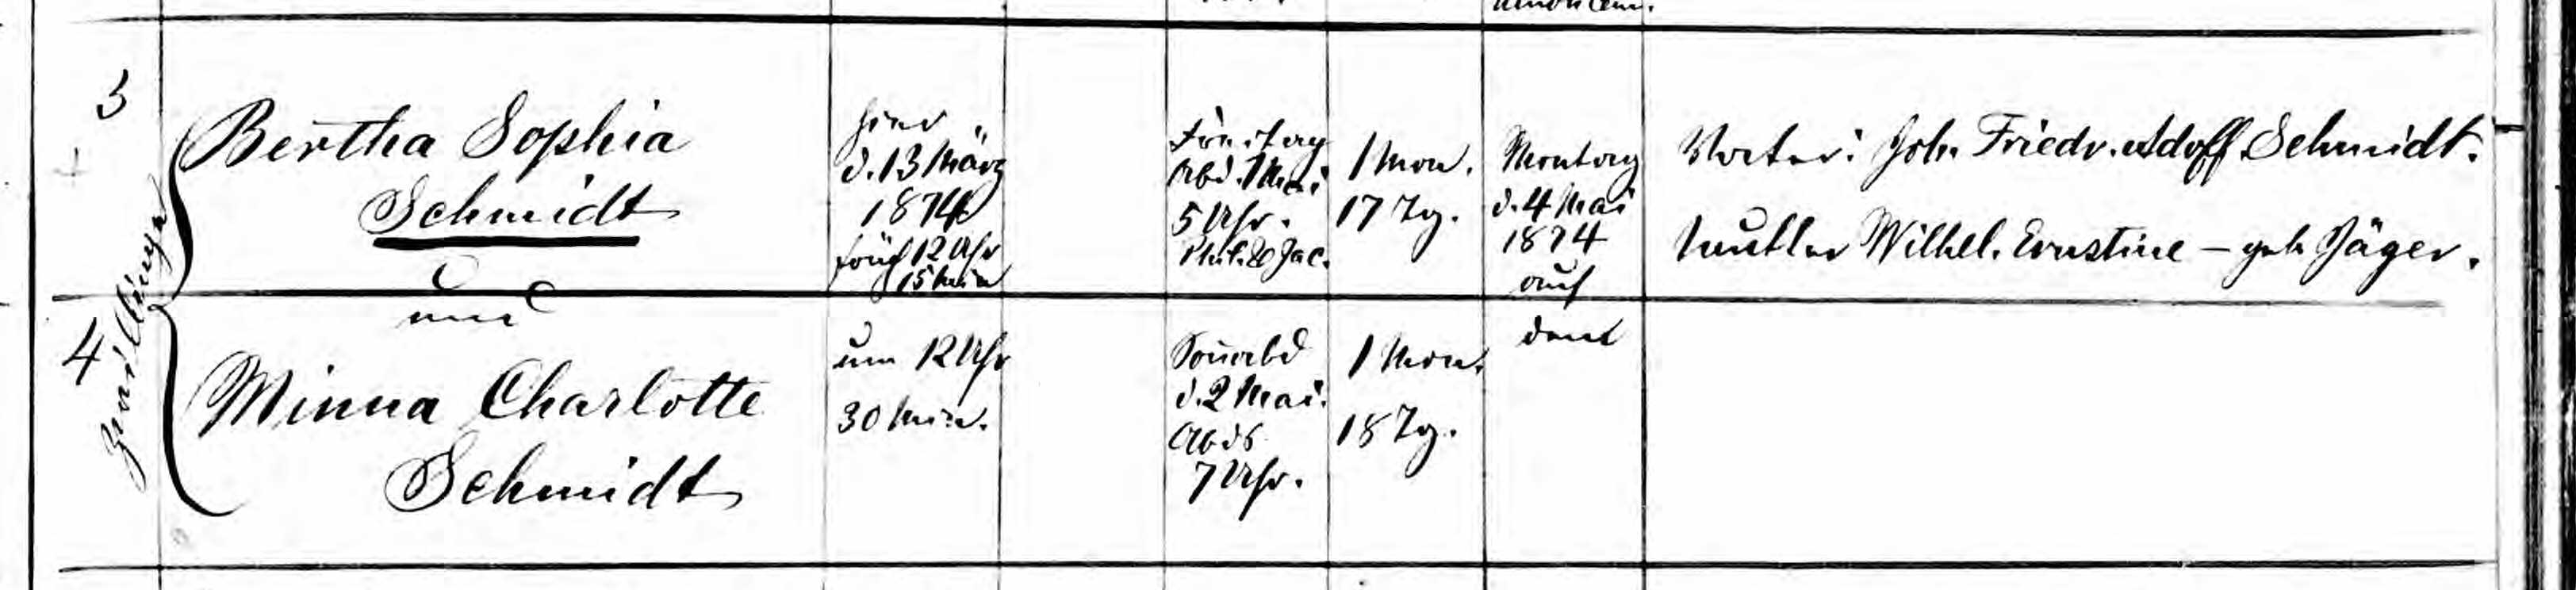 3
Bertha Sophia
Schmidt
und
hier
d. 13 März
1874
früh 12 Uhr
15 Min
Freitag
Abd. 1 Mai
5 Uhr.
Phil. & Jac.
1 Mon.
17 Tg.
Montag
d. 4 Mai
1874
auf
dem
Vater: Joh. Friedr. Adolf Schmidt.
Mutter Wilhel. Ernstine – geb. Jäger.
4
Zwillinge
Minna Charlotte
Schmidt
um 12 Uhr
30 Min.
Sonnabd
d. 2 Mai.
Abds
7 Uhr.
1 Mon.
18 Tg.